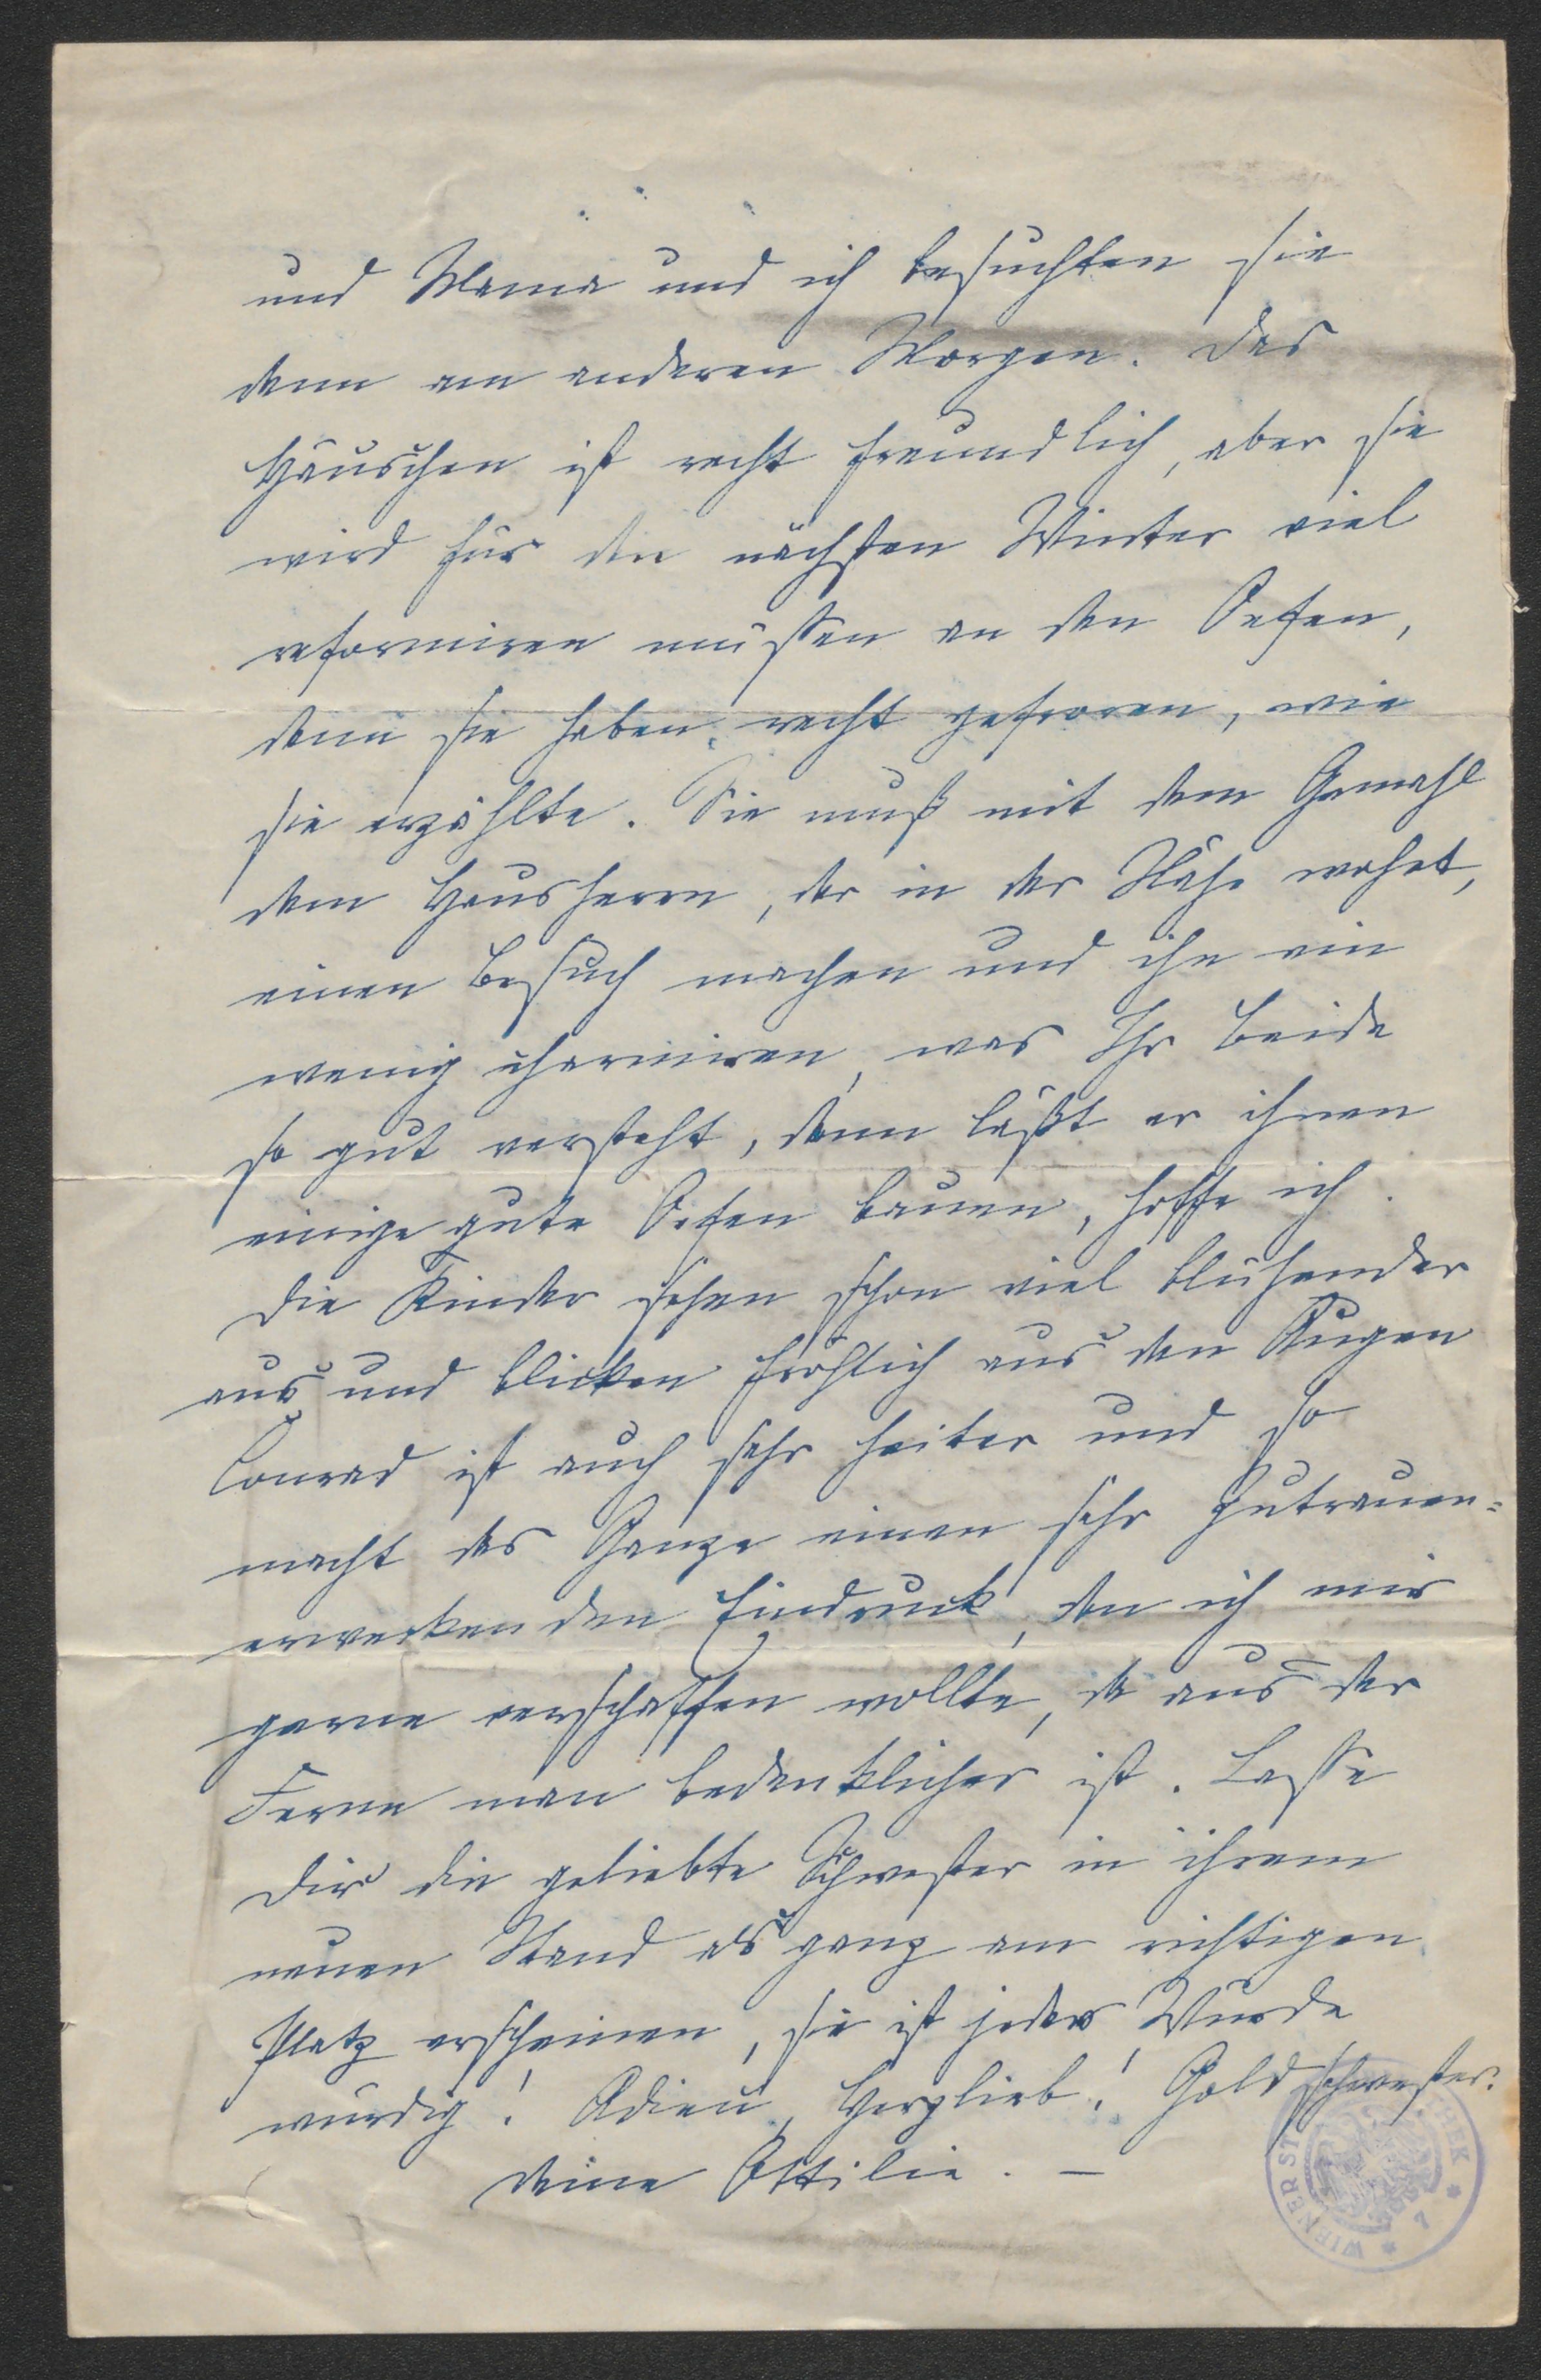 und Mama und ich besuchten sie
dann am anderen Morgen. Das
Häuschen ist recht freundlich, aber sie
wird für den nächsten Winter viel
reformiren müssen an den Oefen,
denn sie haben recht gefroren, wie
sie erzählte. Sie muß mit dem Gemahl
dem Hausherrn, der in der Nähe wohnt,
einen Besuch machen und ihn ein
wenig charmiren, was Ihr beide
so gut versteht, dann läßt er ihnen
einige gute Oefen bauen, hoffe ich.
Die Kinder sehen schon viel blühender
aus und blicken fröhlich aus den Augen
Conrad ist auch sehr heiter und so
macht das Ganze einen sehr zutrauen=
erweckenden Eindruck, den ich mir
gerne verschaffen wollte, da aus der
Ferne man bedenklicher ist. Lasse
Dir die geliebte Schwester in ihrem
neuen Stand als ganz am richtigen
Platz erscheinen, sie ist jeder Würde
würdig! Adieu, Herzlieb! Goldschwester.
Deine Ottilie. —
WIENER ST THEK * 7 *